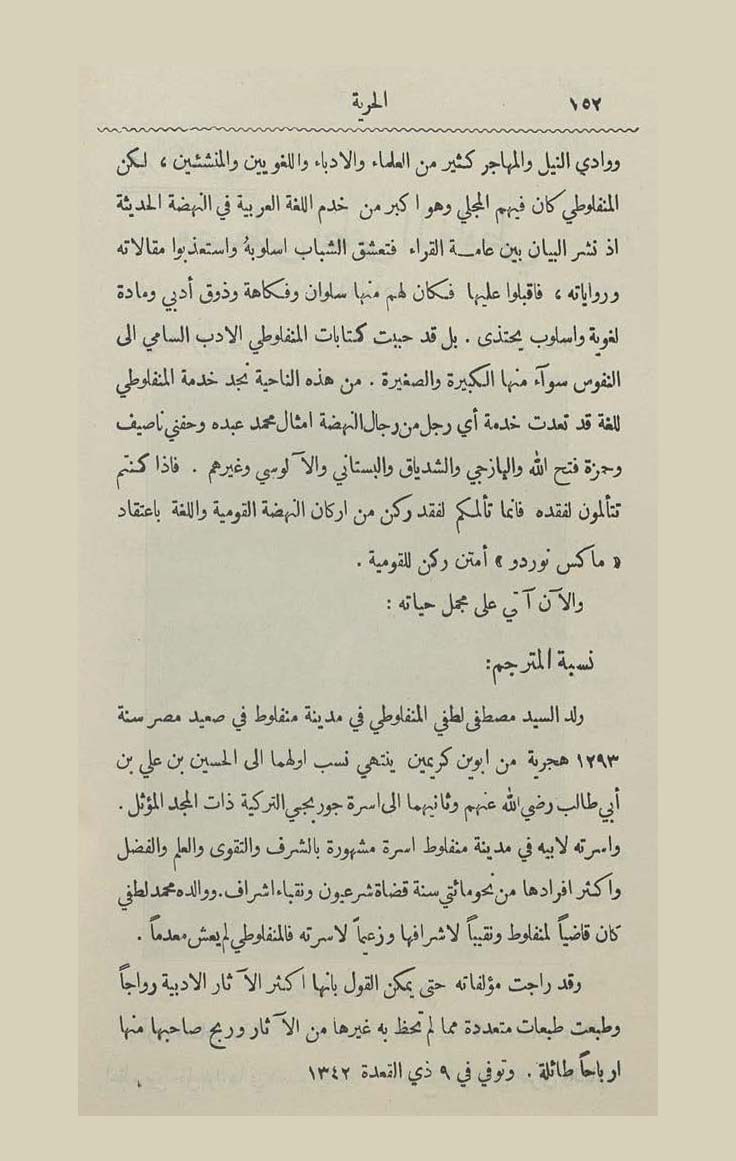 ١٥٢
الحرية
ووادي النيل والمهاجر كثير من العلماء والادباء واللغويين والمنشئين ، لكن
المنفلوطي كان فيهم المجلي وهو اكبر من خدم اللغة العربية في النهضة الحديثة
اذ نشر البيان بين عامة القراء فتعشق الشباب اسلوبهُ واستعذبوا مقالاته
ورواياته ، فاقبلوا عليها فكان لهم منها سلوان وفكاهة وذوق أدبي ومادة
لغوية واسلوب يحتذى . بل قد حببت كتابات المنفلوطي الادب السامي الى
النفوس سوآء منها الكبيرة والصغيرة . من هذه الناحية نجد خدمة المنفلوطي
للغة قد تعدت خدمة أي رجل من رجال النهضة امثال محمد عبده وحفني ناصيف
وحمزة فتح الله واليازجي والشدياق والبستاني والآلوسي وغيرهم . فاذا كنتم
تتألمون لفقده فانما تألمكم لفقد ركن من اركان النهضة القومية واللغة باعتقاد
« ماكس نوردو » أمتن ركن للقومية .
والآن آتي على مجمل حياته :
نسبة المترجم:
ولد السيد مصطفى لطفي المنفلوطي في مدينة منفلوط في صعيد مصر سنة
١٢٩٣ هجرية من ابوين كريمين ينتهي نسب اولهما الى الحسين بن علي بن
أبي طالب رضي الله عنهم وثانيهما الى اسرة جوربجي التركية ذات المجد المؤثل .
واسرته لابيه في مدينة منفلوط اسرة مشهورة بالشرف والتقوى والعلم والفضل
واكثر افرادها من نحو مائتي سنة قضاة شرعيون ونقباء اشراف. ووالده محمد لطفي
كان قاضياً لمنفلوط ونقيباً لاشرافها وزعيماً لاسرته فالمنفلوطي لم يعش معدماً .
وقد راجت مؤلفاته حتى يمكن القول بانها اكثر الآثار الادبية رواجاً
وطبعت طبعات متعددة مما لم تحفظ به غيرها من الآثار وربح صاحبها منها
ارباحاً طائلة . وتوفي في ٩ ذي القعدة ١٣٤٢